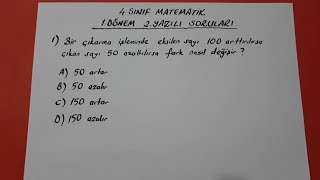 4. SINIF MATEMATİK
1.DÖNEM 2.YAZILI SORULARI
1) Bir çıkarma işleminde eksilen sayı 100 arttırılırsa
çıkan sayı 50 azaltılırsa fark nasıl değişir?
A) 50 artar
B) 50 azalır
C) 150 artar
D) 150 azalır